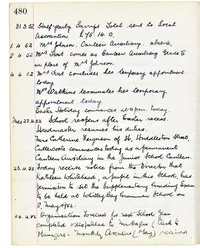 480
31.3.52 Half-yearly Savings Total sent to Local
Association £45 14. 0.
1. 4. 52 Mrs Johnson, Canteen Auxiliary, absent.
4. 52 Mrs commences as Canteen Auxiliary Grade II
in place of Mrs Johnson.
4. 52 Mrs continues her temporary appointment
today.
Mrs Watkins terminates her temporary
appointment today.
Easter Holiday commences at 4 p.m. today.
22.4.52 School reopens after Easter recess.
Headmaster resumes his duties.
Mrs Catherine Ferguson of 36, Street,
Cullercoats commences today as a permanent
Canteen Auxiliary in the Junior School Canteen.
23.4.52 Today receive notice from the Director that
Kathleen Whitehead, a pupil in this School, has
permission to sit the Supplementary Exam
to be held at Whitley Bay Grammar School on
2nd May, 1952.
24.4.52 Organisation forecast for next School Year
completed &
Managers. Monthly received